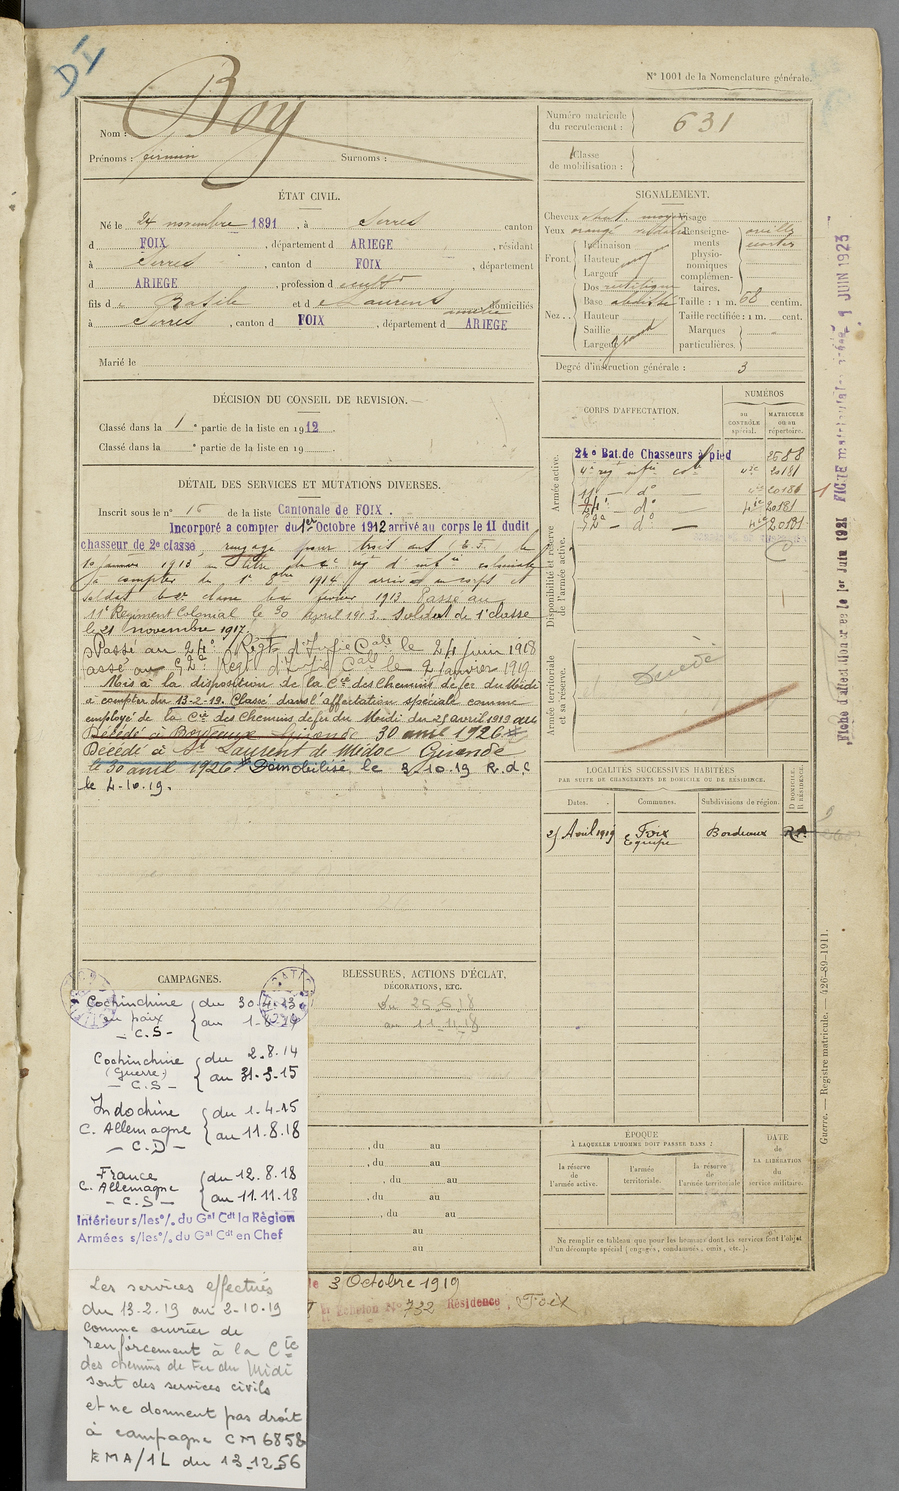 DI
N° 1001 de la Nomenclature générale.
Boy
Nom :
Prénoms : firmin Surnoms :
Numéro matricule du recrutement : 631
Classe de mobilisation :
ÉTAT CIVIL.
Né le 24 novembre 1891, à Serres canton
d FOIX, département d ARIEGE, résidant
à Serres, canton d FOIX, département
d ARIEGE, profession d cult
fils d Basile et d Laurens amélie domiciliés
à Serres, canton d FOIX, département d ARIEGE
Marié le
SIGNALEMENT.
Cheveux chat. moy Visage
Yeux orangé
Front. Inclinaison
Hauteur
Largeur
Nez.. Dos rectiligne
Base
Hauteur
Saillie
Largeur grand
Renseignements physionomiques complémentaires.
Taille : 1 m. 68 centim.
Taille rectifiée : 1 m. cent.
Marques particulières.
Degré d'instruction générale : 3
DÉCISION DU CONSEIL DE REVISION.
Classé dans la 1e partie de la liste en 1912.
Classé dans la e partie de la liste en 19
DÉTAIL DES SERVICES ET MUTATIONS DIVERSES.
Inscrit sous le n° 16 de la liste Cantonale de FOIX.
Incorporé a compter du 1er Octobre 1912 arrivé au corps le 11 dudit
chasseur de 2e classe, rengagé pour trois ans (E.T.) le
1er janvier 1913 au titre du 4e régt d'infie coloniale
à compter du 1er 8bre 1914, arrivé au corps et
soldat février 1913. Passé au
11e Régiment Colonial le 30 Avril 1913. Soldat de 1e classe
le 21 novembre 1917.
Passé au 24e Régt d'Infie Cale le 24 juin 1918
passé au 52e Régt d'Infie Cale le 2 janvier 1919
Mis à la disposition de la Cie des Chemins de fer du Midi
à compter du 13-2-19. Classé dans l'affectation spéciale comme
employé de la Cie des Chemins de fer du Midi du 25 avril 1919 au
Décédé à Bordeaux Gironde 30 avril 1926
Décédé à St Laurent de Médoc Gironde
le 30 avril 1926. Démobilisé le 3-10-19 R.d.C
le 4-10-19.
CORPS D'AFFECTATION.
NUMÉROS
au CONTRÔLE spécial.
MATRICULE ou au répertoire.
Armée active.
24e Bat. de Chasseurs à pied 2588
4e régt infie cole 20181
11e — do — 20181
24e — do — 20181
52e — do — 20181
Disponibilité et réserve de l'armée active.
Armée territoriale et sa réserve.
Décédé
LOCALITÉS SUCCESSIVES HABITÉES
PAR SUITE DE CHANGEMENTS DE DOMICILE OU DE RÉSIDENCE.
Dates. Communes. Subdivisions de région. D DOMICILE. R RÉSIDENCE.
25 Avril 1919 Foix Bordeaux
CAMPAGNES.
Cochinchine en paix — C.S — du 30.4.13 au 1-8-14
Cochinchine (Guerre) — C.S — du 2.8.14 au 31-3-15
Indochine C. Allemagne — C.D — du 1-4-15 au 11.8.18
France C. Allemagne — C.S — du 12.8.18 au 11.11.18
Intérieur s/les °/. du Gal Cdt la Région
Armées s/les °/. du Gal Cdt en Chef
Les services effectués
du 13-2.19 au 2-10-19
comme ouvrier de
renforcement à la Cie
des chemins de Fer du Midi
sont des services civils
et ne donnent pas droit
à campagne CM 6858
EMA/1L du 13_12_56
BLESSURES, ACTIONS D'ÉCLAT,
DÉCORATIONS, ETC.
Du 25_6_18
au 11_11_18
, du au
, du au
, du au
, du au
, du au
au
au
ÉPOQUE
À LAQUELLE L'HOMME DOIT PASSER DANS :
la réserve de l'armée active. l'armée territoriale. la réserve de l'armée territoriale
DATE de LA LIBÉRATION du service militaire.
Ne remplir ce tableau que pour les hommes dont les services font l'objet
d'un décompte spécial (engagés, condamnés, omis, etc.).
le 3 Octobre 1919
Echelon N° 732 Résidence, Foix
Guerre. — Registre matricule. — 426-89-1911.